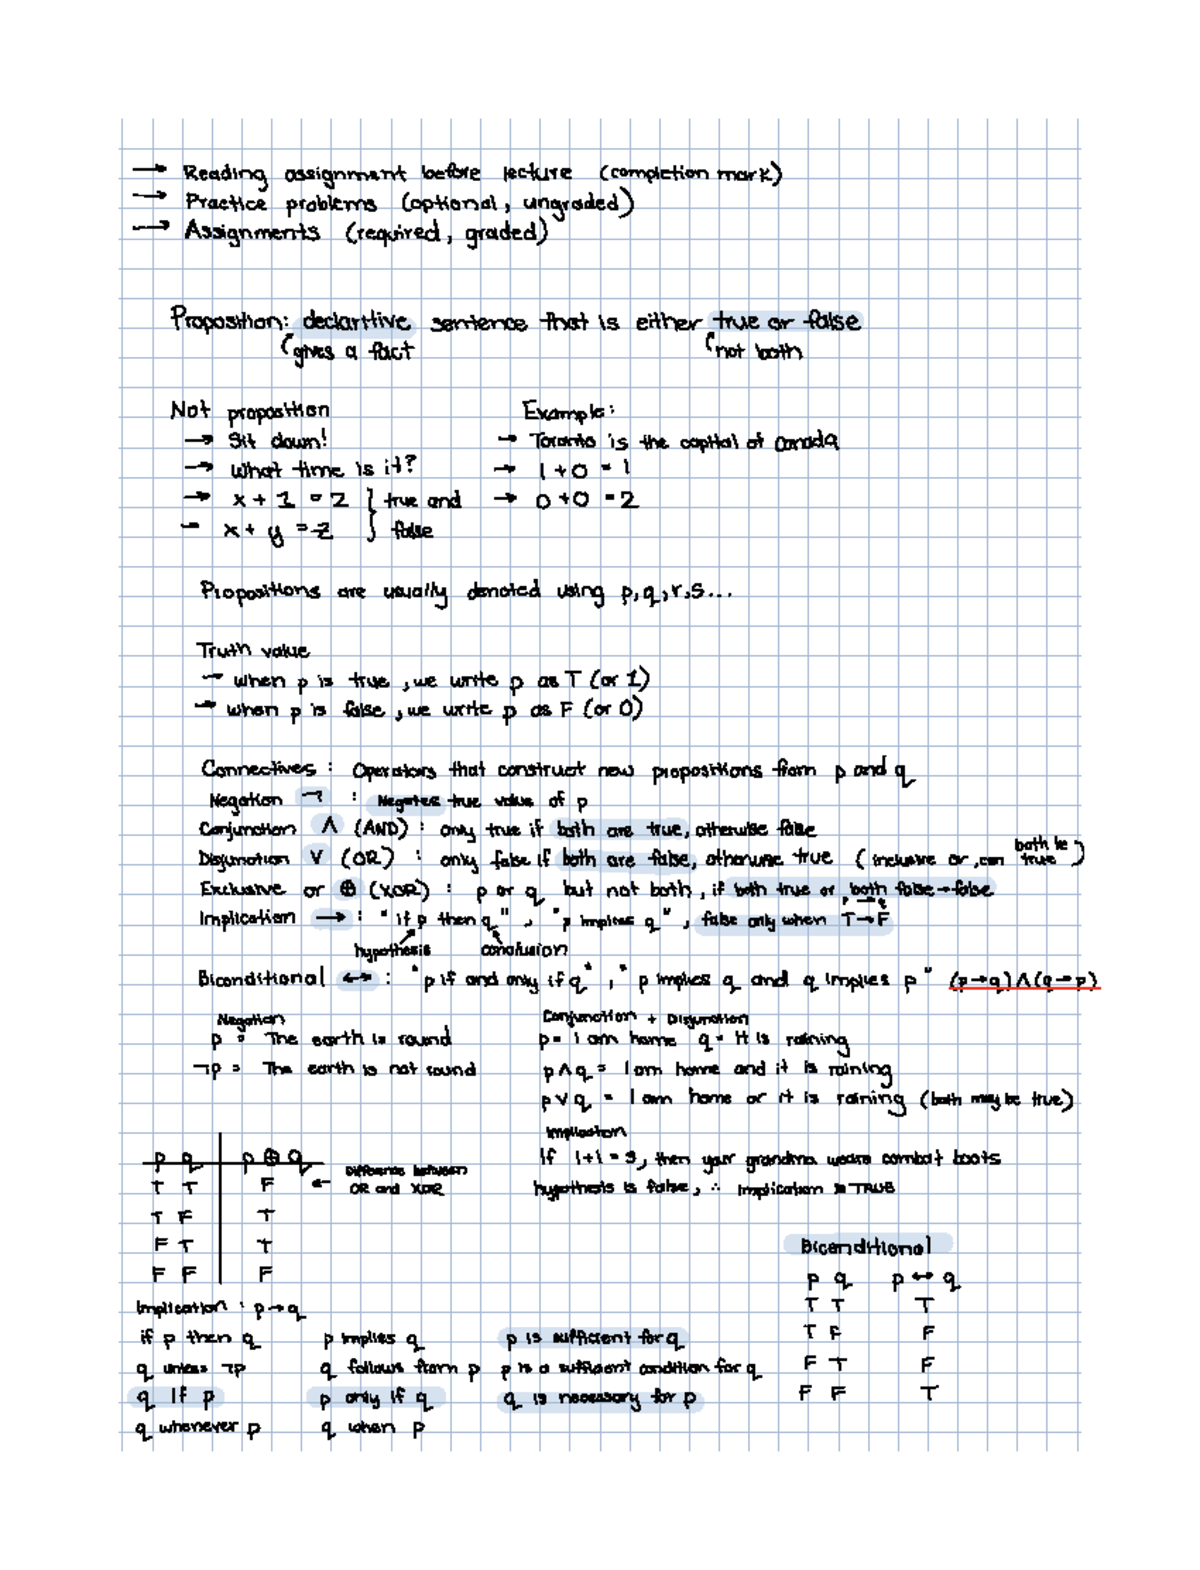 → Reading assignment before lecture (completion mark)
→ Practice problems (optional, ungraded)
→ Assignments (required, graded)
Proposition: declartive sentence that is either true or false
gives a fact
not both
Not proposition
→ Sit down!
→ What time is it?
→ x + 1 = 2 } true and
→ x + y = z } false
Example:
→ Toronto is the capital of Canada
→ 1 + 0 = 1
→ 0 + 0 = 2
Propositions are usually denoted using p, q, r, s...
Truth value
→ when p is true, we write p as T (or 1)
→ when p is false, we write p as F (or 0)
Connectives : Operators that construct new propositions from p and q
Negation ¬ : Negates true value of p
Conjunction ∧ (AND) : only true if both are true, otherwise false
Disjunction ∨ (OR) : only false if both are false, otherwise true (inclusive or, can both be true)
Exclusive or ⊕ (XOR) : p or q but not both, if both true or both false → false
Implication → : "if p then q", "p implies q", false only when T → F
p → q
hypothesis conclusion
Biconditional ↔ : "p if and only if q", "p implies q and q implies p" (p→q)∧(q→p)
Negation
p = The earth is round
¬p = The earth is not round
Conjunction + Disjunction
p = I am home q = It is raining
p ∧ q = I am home and it is raining
p ∨ q = I am home or it is raining (both may be true)
Implication
If 1+1 = 3, then your grandma wears combat boots
hypothesis is false, ∴ implication is TRUE
p q p ⊕ q
T T F ← Difference between OR and XOR
T F T
F T T
F F F
Biconditional
p q p ↔ q
T T T
T F F
F T F
F F T
Implication : p → q
if p then q p implies q p is sufficient for q
q unless ¬p q follows from p p is a sufficient condition for q
q if p p only if q q is necessary for p
q whenever p q when p